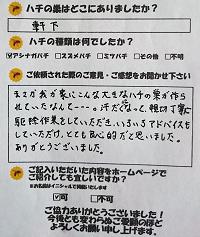 ハチの巣はどこにありましたか?
軒下
ハチの種類は何でしたか?
☑アシナガバチ □スズメバチ □ミツバチ □その他 □不明
ご依頼された際のご意見・ご感想をお聞かせ下さい
まさか我が家にこんな大きなハチの巣が作ら
れていたなんて…。汗だくなって、親切丁寧に
駆除作業をしていただき、いろいろアドバイスも
していただけ、とても良心的だと思いました。
ありがとうございました。
ご記入いただいた内容をホームページで
ご紹介しても宜しいですか?
※お名前はイニシャルで掲載いたします
☑可 □不可
ご協力ありがとうございました!
今後とも変わらぬご愛顧のほど
よろしくお願い申し上げます。